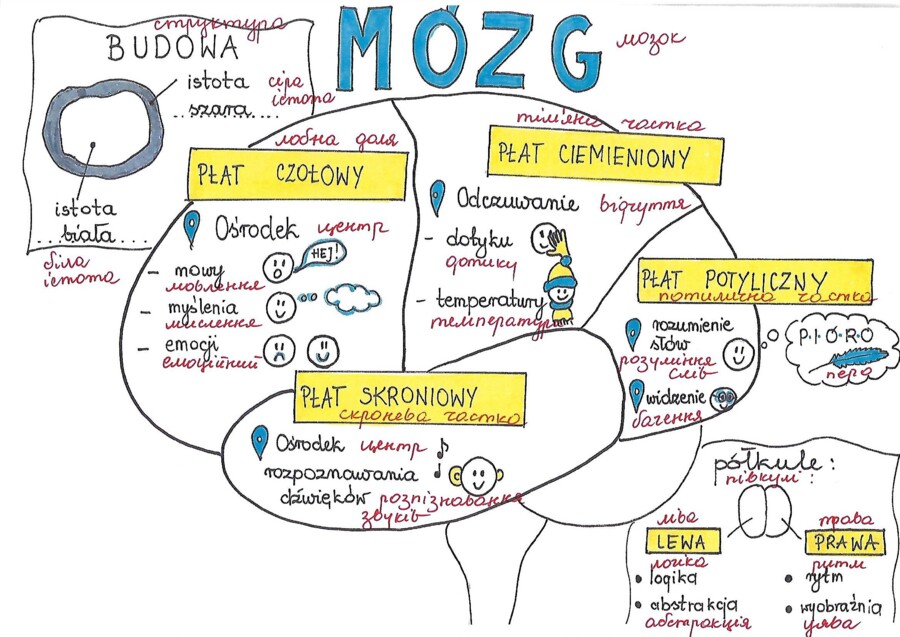 MÓZG
мозок
структура
BUDOWA
istota сіра
szara істота
istota
biała
біла
істота
лобна доля
PŁAT CZOŁOWY
Ośrodek центр
- mowy
мовлення
HEJ!
- myślenia
мислення
- emocji
емоційний
тім'яна частка
PŁAT CIEMIENIOWY
Odczuwanie відчуття
- dotyku
дотику
- temperatury
температури
PŁAT POTYLICZNY
потилична частка
rozumienie
słów
розуміння
слів
P·I·Ó·R·O
перо
widzenie
бачення
PŁAT SKRONIOWY
скронева частка
Ośrodek центр
rozpoznawania
dźwięków розпізнавання
звуків
półkule:
півкулі :
ліва
LEWA
логіка
• logika
• abstrakcja
абстракція
права
PRAWA
ритм
• rytm
• wyobraźnia
уява